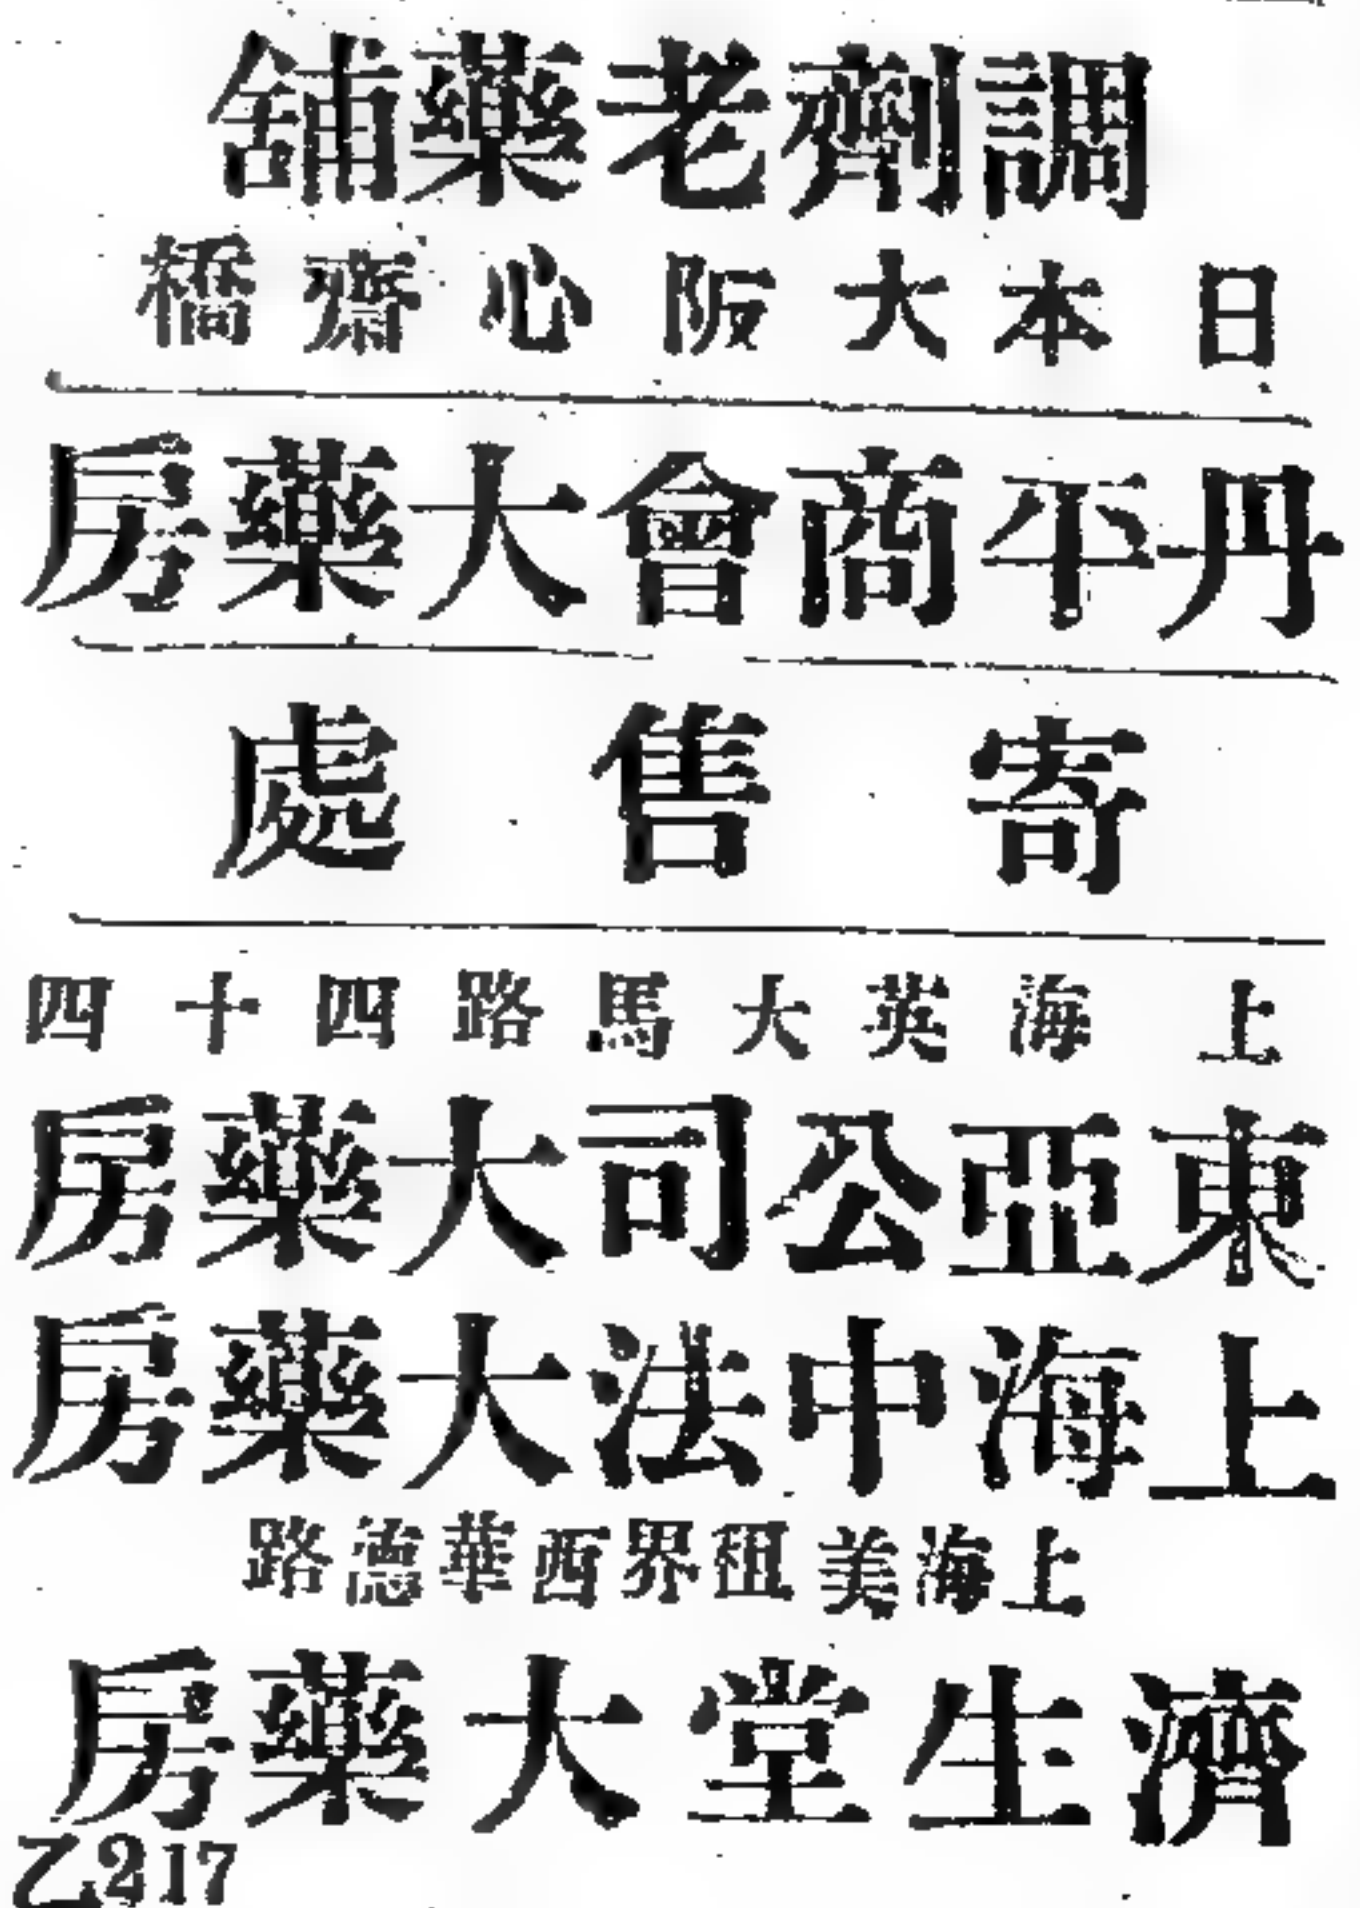 調劑老藥舖
日本大阪心齋橋
丹平商會大藥房
寄售處
上海英大馬路四十四
東亞公司大藥房
上海中法大藥房
上海美租界西華德路
濟生堂大藥房
乙217